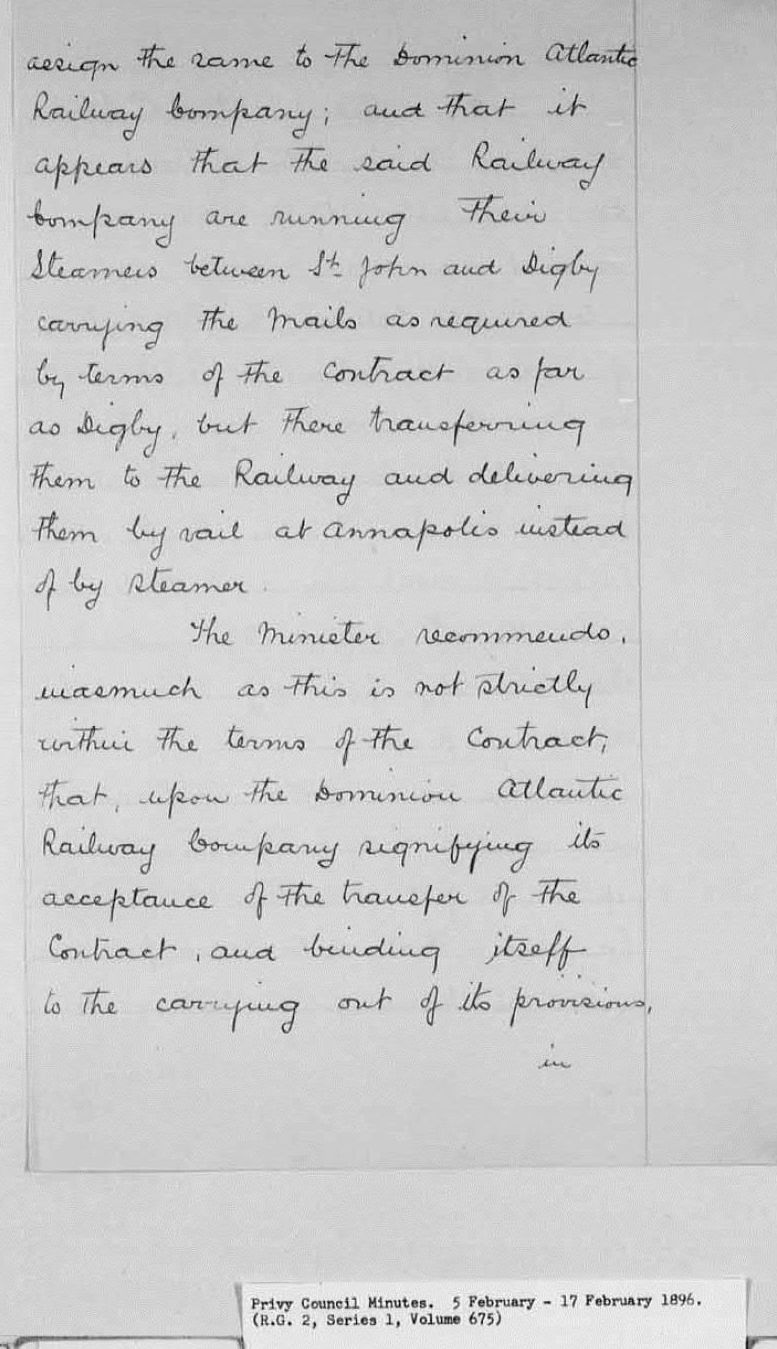 assign the same to the Dominion Atlantic
Railway Company; and that it
appears that the said Railway
Company are running their
Steamers between St. John and Digby
carrying the Mails as required
by terms of the Contract as far
as Digby, but there transferring
them to the Railway and delivering
them by rail at Annapolis instead
of by Steamer.
The Minister recommends,
inasmuch as this is not strictly
within the terms of the Contract,
that, upon the Dominion Atlantic
Railway Company signifying its
acceptance of the transfer of the
Contract, and binding itself
to the carrying out of its provisions,
in
Privy Council Minutes. 5 February - 17 February 1896.
(R.G. 2, Series 1, Volume 675)